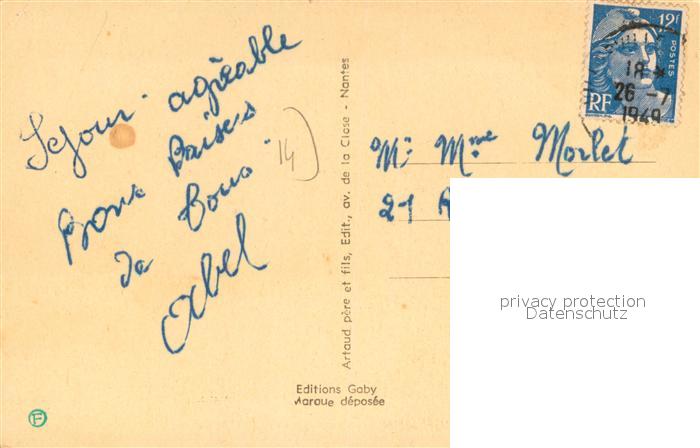 Séjour agréable
Bons Baisers
à Tous.
Abel
14
Artaud père et fils, Edit., av. de la Close - Nantes
Editions Gaby
Marque déposée
F
12F
POSTES
RF
18 *
26 - 7
1949
Mr Mme Morlet
21 R
privacy protection
Datenschutz